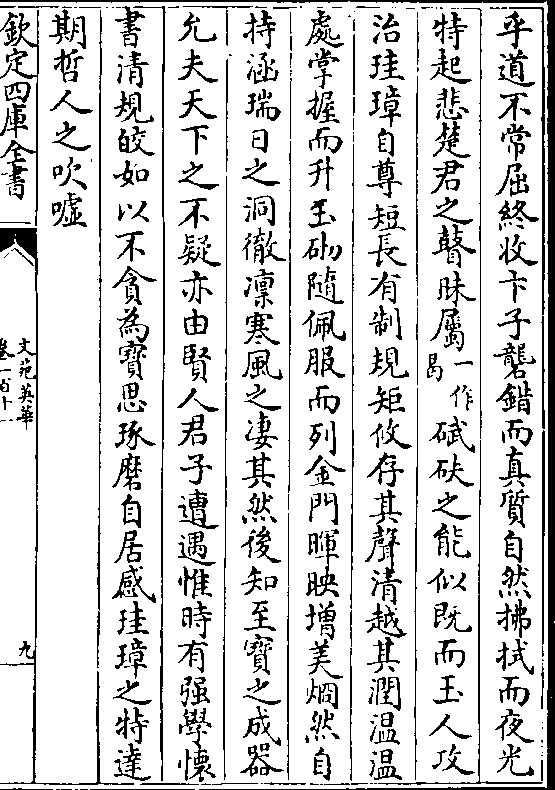 乎道不常屈終收卞子礱錯而真質自然拂拭而夜光
特起悲楚君之瞽昧屬一作曷碔砆之能似既而玉人攻
治珪璋自尊短長有制規矩攸存其聲清越其潤温温
處掌握而升玉砌隨佩服而列金門暉映増美烱然自
持涵瑞日之洞徹凛寒風之凄其然後知至寶之成器
允夫天下之不疑亦由賢人君子遭遇惟時有强學懷
書清規皎如以不貪為寶思琢磨自居感珪璋之特達
期哲人之吹嘘
欽定四庫全書
文苑英華
卷一百十一
九